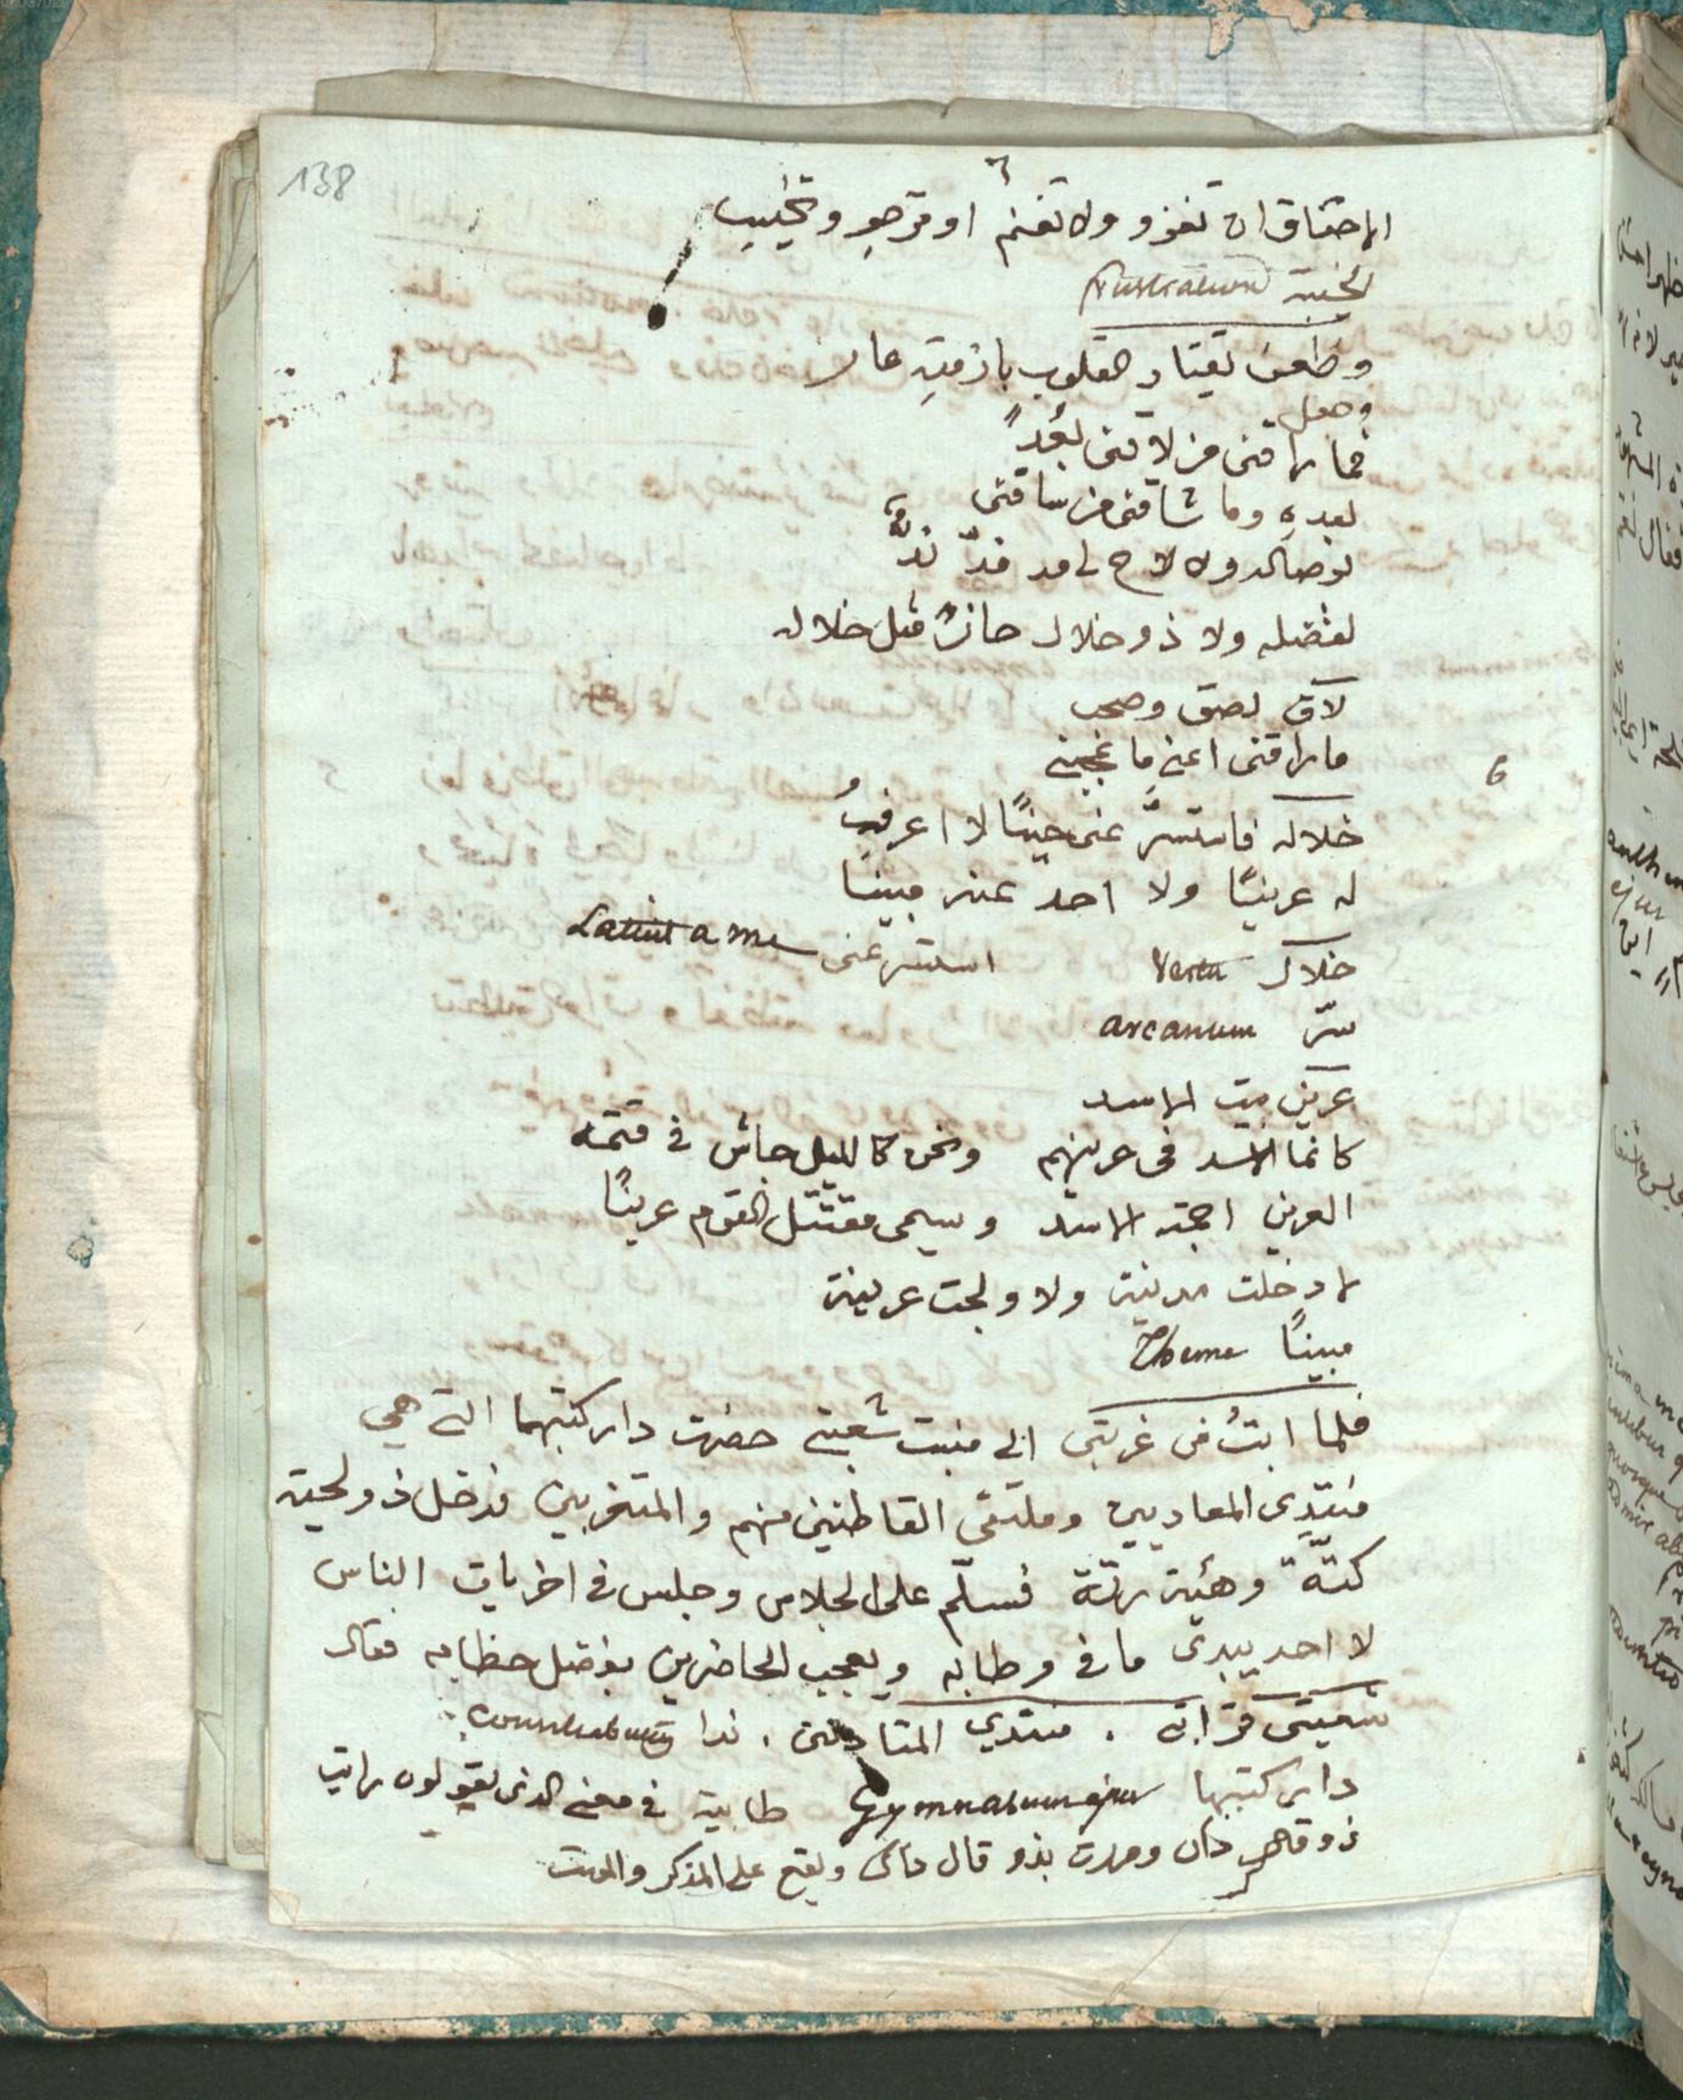 138
الاحقاق ان تغزو ولا تغنم او ترجو وتخيب
الخيبة frustration
وطفق يقتاد القلوب بازمته حال
وصل
فما راقنى من لاقنى بعد
بعده وما شاقنى من ساقنى
لوصاله ولا لاح لى مد ند ندّ
لفضله ولا ذو خلال حاز مثل خلاله
لاق لصق وصحب
ما راقنى اعنى ما عجبنى
6
خلاله فاستسرّ عنى حينًا لا اعرف
له عرينًا ولا احد عنه مبينًا
خلال Vertu استسر عنى Latuit a me
سرّ arcanum
عرين بيت الاسد
كانما الاسد فى عرينهم ونحن كالليل جاش فى قتمه
العرين اجمة الاسد ويسمى مقتتل القوم عرينًا
لا دخلت مدينة ولا ولجت عرينة
مبينًا Theme
فلما ابتُ من غربتى الى منبت شعبتى حضرت دار كتبها التى هى
منتدى المتادبين وملتقى القاطنين منهم والمتغربين فدخل ذو لحية
كثّة وهئية رثّة فسلّم على الجلاس وجلس فى اخريات الناس
لا احد يبدى ما فى وطابه ويعجب الحاضرين بفضل خطابه فقال
شعبتى قرابة . منتدي المتادبين . ندا
دار كتبها Gymnasium ejus طايية فى معنى الذى يقولون رايت
ذو قال ذاك ومررت بذو قال ذاك ويقع على المذكر والمونث